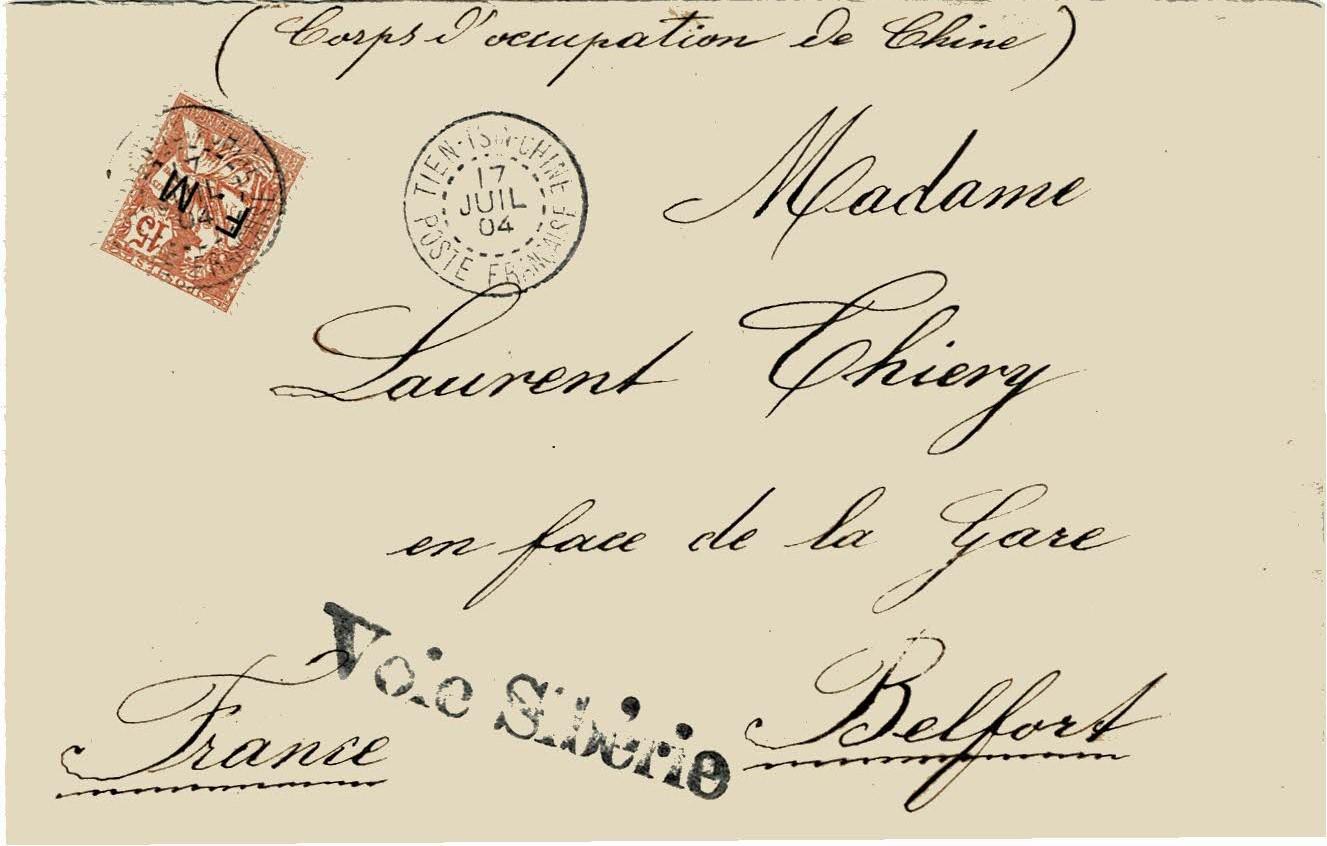 (Corps d'occupation de Chine)
F.M
15
POSTES
TIEN-TSIN-CHINE
17
JUIL
04
POSTE FRANÇAISE
Madame
Laurent Thiery
en face de la Gare
Voie Sibérie
Belfort
France